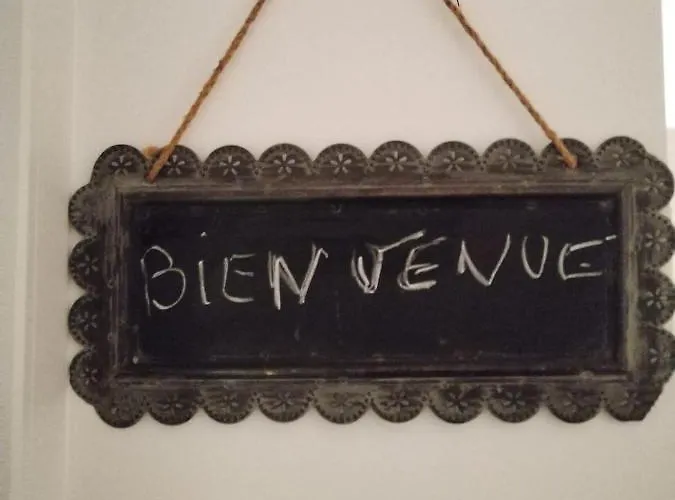 BiEN VENUE